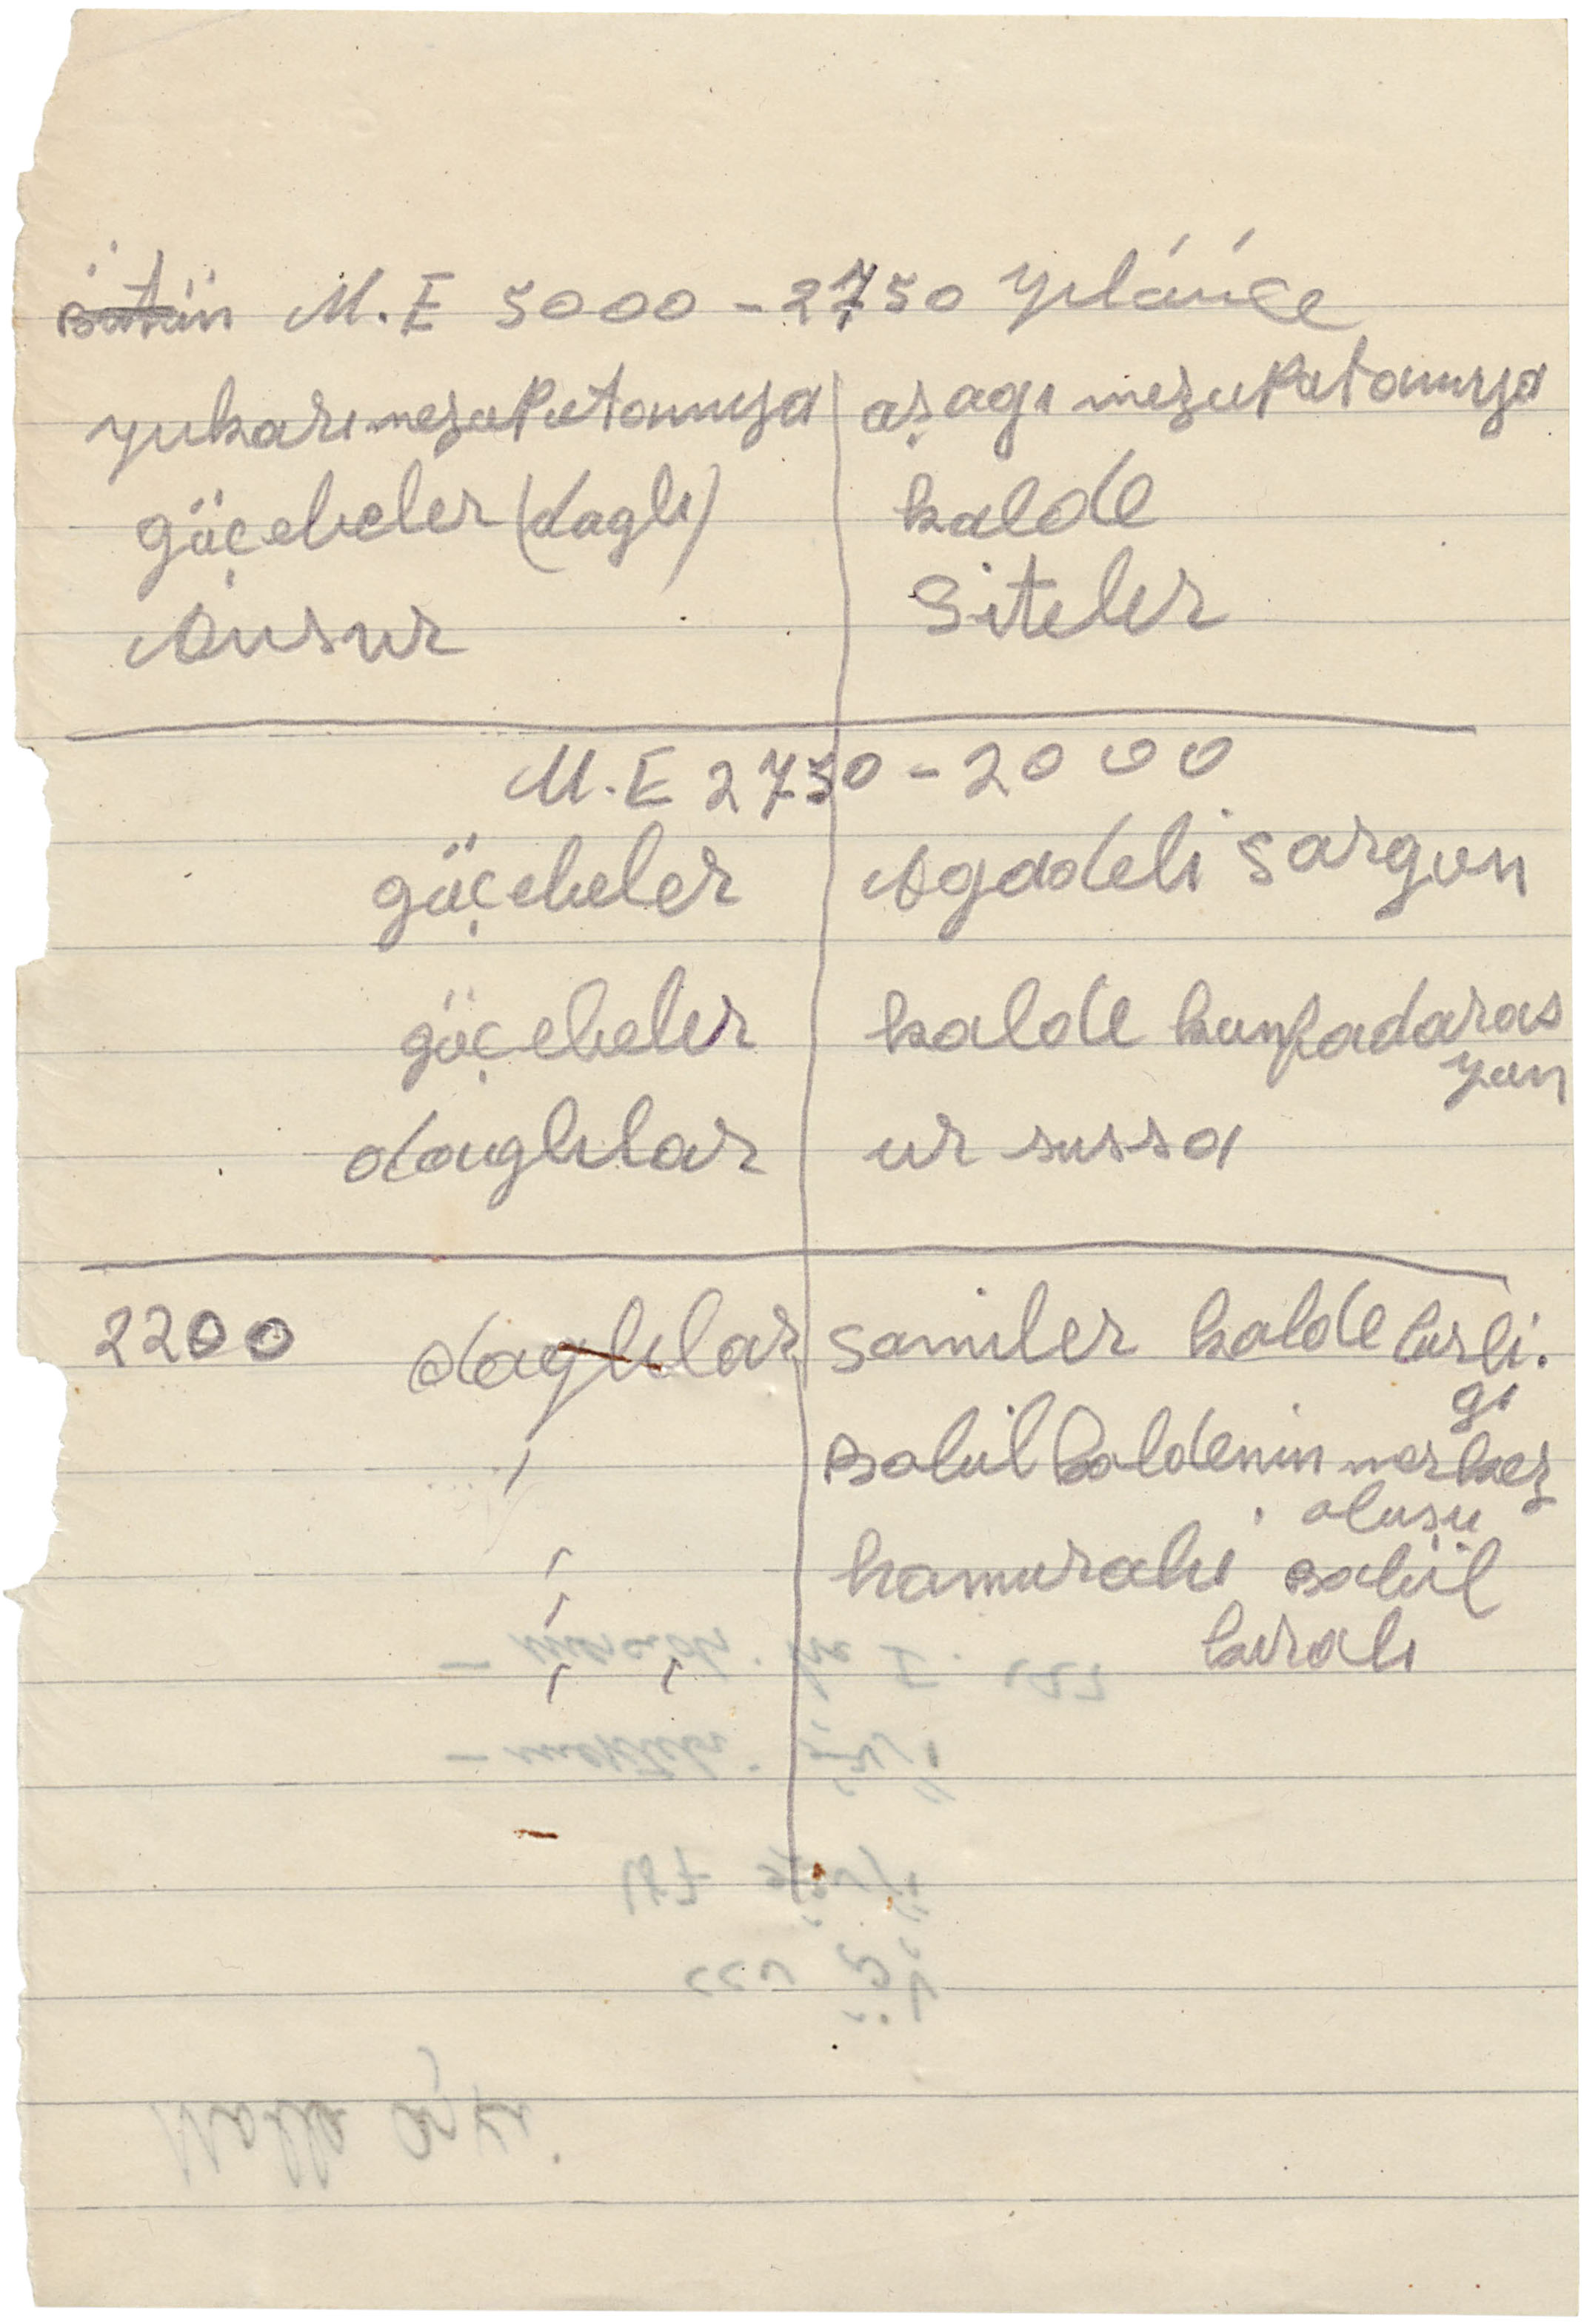 M.E 5000 - 2750 yılánće
yukarı mezuputamıya | aşagı mezupatamıya
göçebeler (daglı) | kalde
Ausur | Siteler
M.E 2750 - 2000
göçebeler | Agadeli sargon
göçebeler | kalde kunfadaras
yon
daglılar | ur sussa
2200 daglılar | samiler kalde birli.
gi
Babil kaldenin merkez
oluşu
hamurabi Babil
kıralı